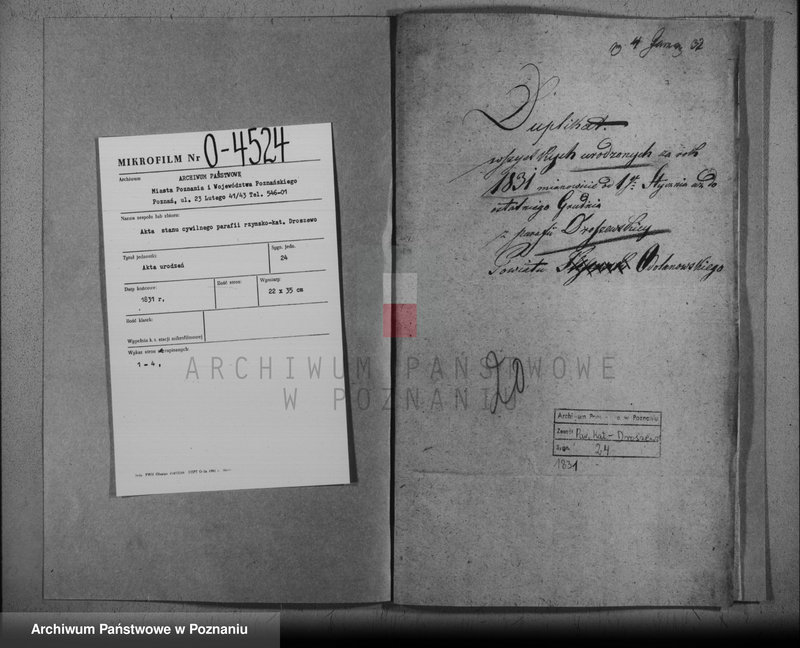 MIKROFILM Nr O-4524
Archiwum ARCHIWUM PAŃSTWOWE
Miasta Poznania i Województwa Poznańskiego
Poznań, ul. 23 Lutego 41/43 Tel. 546-01
Nazwa zespołu lub zbioru:
Akta stanu cywilnego parafii rzymsko-kat. Droszewo
Tytuł jednostki:
Akta urodzeń
Sygn. jedn.
24
Daty końcowe:
1831 r.
Ilość stron:
Wymiary:
22 x 35 cm
Ilość klatek:
Wypełnia k. t. stacji mikrofilmowej
Wykaz stron
1 - 4,
4 32
Duplikat
wszystkich urodzonych za rok
1831 mianowicie od 1go Stycznia aż do
ostatniego Grudnia
z parafii Droszewskiey
Powiatu Odolanowskiego
20
Archiwum w Poznaniu
Zespół Par. Kat - Droszew
Sygn. 24
1831
ARCHIWUM PAŃSTWOWE
W POZNANIU
Archiwum Państwowe w Poznaniu